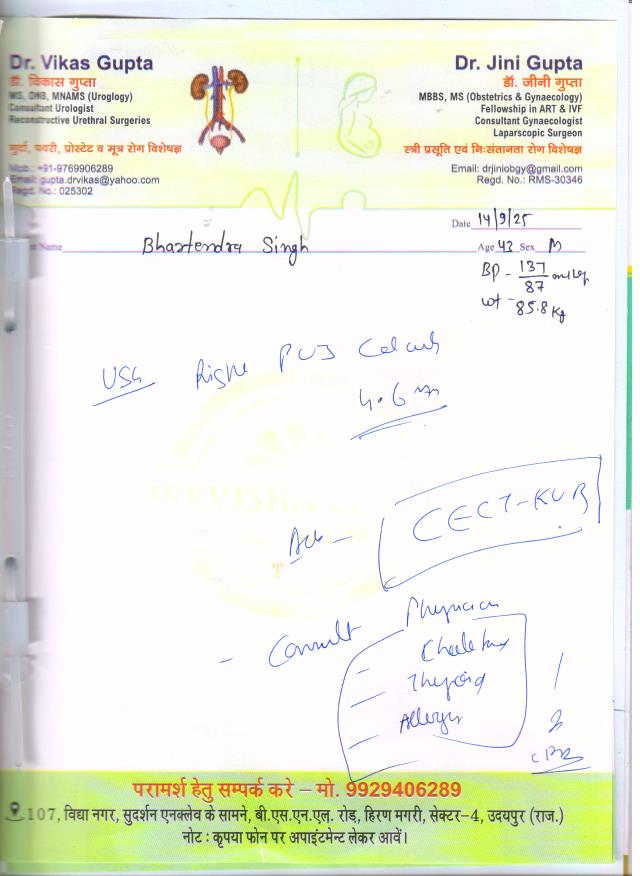 Dr. Vikas Gupta
डॉ. विकास गुप्ता
MS, DNB, MNAMS (Uroglogy)
Consultant Urologist
Reconstructive Urethral Surgeries
गुर्दा, पथरी, प्रोस्टेट व मूत्र रोग विशेषज्ञ
Mob.: +91-9769906289
Email: gupta.drvikas@yahoo.com
Regd. No.: 025302
Dr. Jini Gupta
डॉ. जीनी गुप्ता
MBBS, MS (Obstetrics & Gynaecology)
Fellowship in ART & IVF
Consultant Gynaecologist
Laparscopic Surgeon
स्त्री प्रसूति एवं निःसंतानता रोग विशेषज्ञ
Email: drjiniobgy@gmail.com
Regd. No.: RMS-30346
Date 14/9/25
Name Bhartendra Singh Age 43 Sex M
BP - 137/87 mmHg
wt - 85.8 Kg
USG Right PUJ
4.6 mm
CECT-KUB
- Consult Physician
Thyroid
Allergy
परामर्श हेतु सम्पर्क करे – मो. 9929406289
107, विद्या नगर, सुदर्शन एनक्लेव के सामने, बी.एस.एन.एल. रोड, हिरण मगरी, सेक्टर-4, उदयपुर (राज.)
नोट : कृपया फोन पर अपाइंटमेन्ट लेकर आवें।